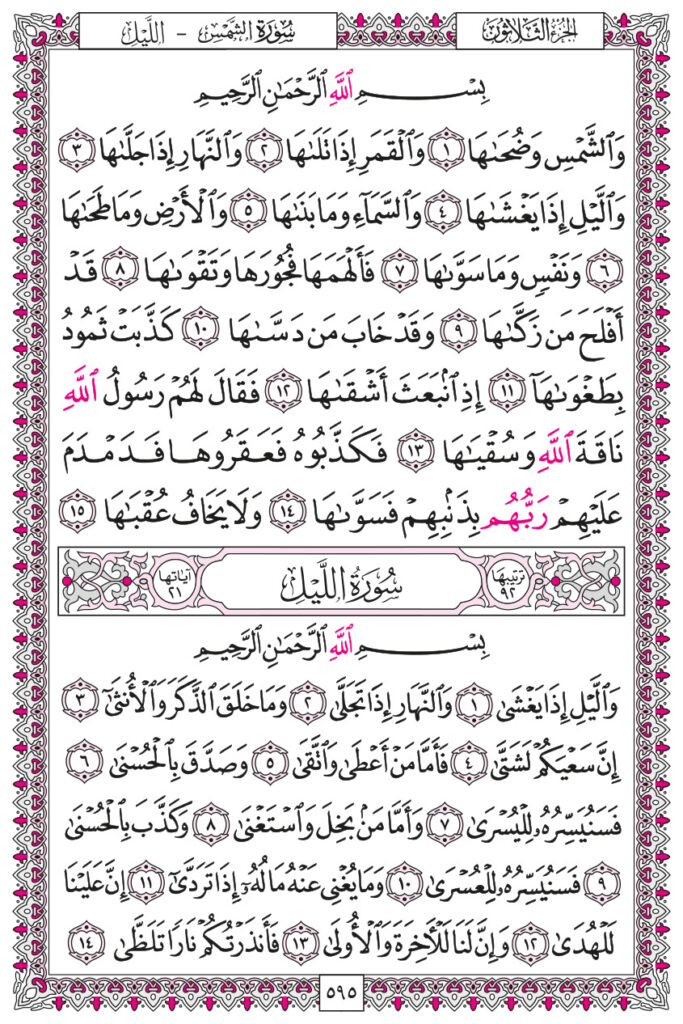 الجزء الثلاثون
سُورَةُ الشَّمْسِ - اللَّيْلِ
بِسْمِ اللَّهِ الرَّحْمَٰنِ الرَّحِيمِ
وَالشَّمْسِ وَضُحَىٰهَا ١ وَالْقَمَرِ إِذَا تَلَىٰهَا ٢ وَالنَّهَارِ إِذَا جَلَّىٰهَا ٣
وَالَّيْلِ إِذَا يَغْشَىٰهَا ٤ وَالسَّمَآءِ وَمَا بَنَىٰهَا ٥ وَالْأَرْضِ وَمَا طَحَىٰهَا
٦ وَنَفْسٍ وَمَا سَوَّىٰهَا ٧ فَأَلْهَمَهَا فُجُورَهَا وَتَقْوَىٰهَا ٨ قَدْ
أَفْلَحَ مَن زَكَّىٰهَا ٩ وَقَدْ خَابَ مَن دَسَّىٰهَا ١٠ كَذَّبَتْ ثَمُودُ
بِطَغْوَىٰهَآ ١١ إِذِ انۢبَعَثَ أَشْقَىٰهَا ١٢ فَقَالَ لَهُمْ رَسُولُ اللَّهِ
نَاقَةَ اللَّهِ وَسُقْيَىٰهَا ١٣ فَكَذَّبُوهُ فَعَقَرُوهَا فَدَمْدَمَ
عَلَيْهِمْ رَبُّهُم بِذَنۢبِهِمْ فَسَوَّىٰهَا ١٤ وَلَا يَخَافُ عُقْبَىٰهَا ١٥
ترتيبها ٩٢ سُورَةُ اللَّيْلِ آياتها ٢١
بِسْمِ اللَّهِ الرَّحْمَٰنِ الرَّحِيمِ
وَالَّيْلِ إِذَا يَغْشَىٰ ١ وَالنَّهَارِ إِذَا تَجَلَّىٰ ٢ وَمَا خَلَقَ الذَّكَرَ وَالْأُنثَىٰٓ ٣
إِنَّ سَعْيَكُمْ لَشَتَّىٰ ٤ فَأَمَّا مَنْ أَعْطَىٰ وَاتَّقَىٰ ٥ وَصَدَّقَ بِالْحُسْنَىٰ ٦
فَسَنُيَسِّرُهُۥ لِلْيُسْرَىٰ ٧ وَأَمَّا مَنۢ بَخِلَ وَاسْتَغْنَىٰ ٨ وَكَذَّبَ بِالْحُسْنَىٰ
٩ فَسَنُيَسِّرُهُۥ لِلْعُسْرَىٰ ١٠ وَمَا يُغْنِى عَنْهُ مَالُهُۥٓ إِذَا تَرَدَّىٰٓ ١١ إِنَّ عَلَيْنَا
لَلْهُدَىٰ ١٢ وَإِنَّ لَنَا لَلْآخِرَةَ وَالْأُولَىٰ ١٣ فَأَنذَرْتُكُمْ نَارًا تَلَظَّىٰ ١٤
٥٩٥